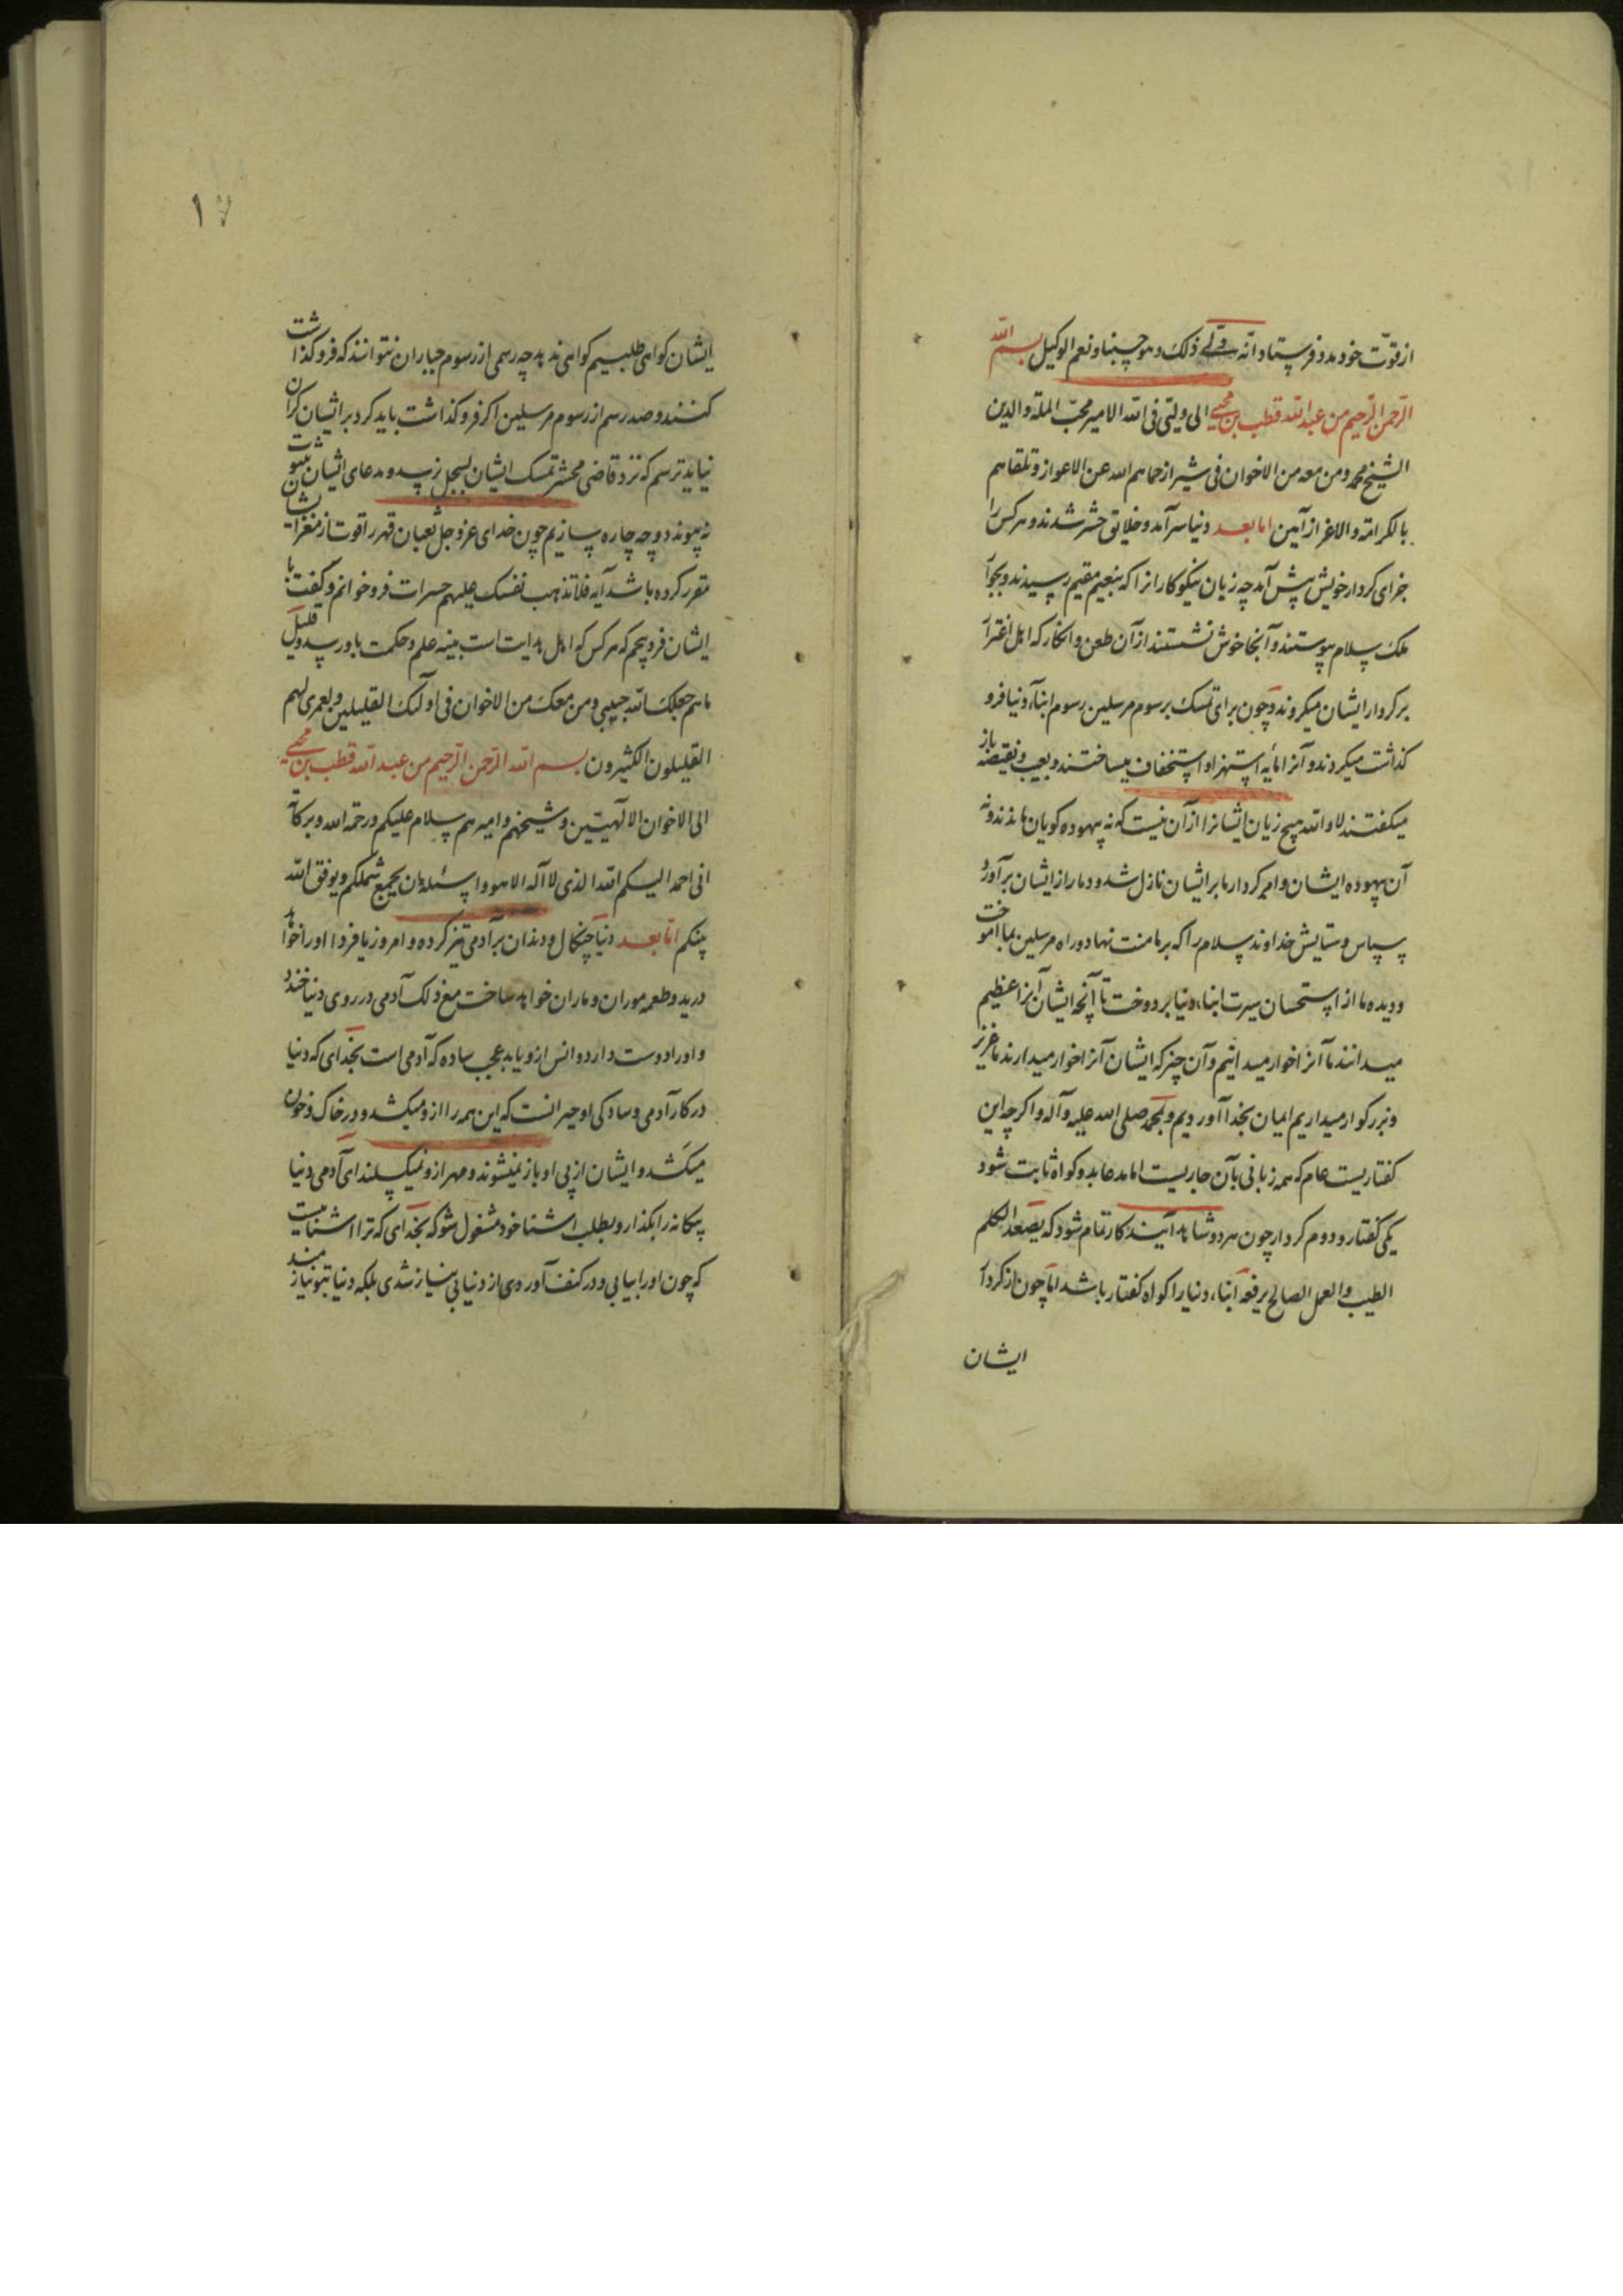 از قوّت خود مدد فرستاد انّه ولی ذلک و هو حسبنا و نعم الوکیل بسم اللّه
الرّحمن الرّحیم من عبد اللّه قطب بن محیی الی ولیّی فی اللّه الامیر محبّ الملة والدین
الشیخ محمد و من معه من الاخوان فی شیراز حماهم اللّه عن الاعواز و تلقاهم
بالکرامة والاعزاز آمین اما بعد دنیا سرآمد و خلایق حشر شدند و هر کس را
جزای کردار خویش پیش آمد چه زیان نیکوکارانرا که بنعیم مقیم رسیدند و بجوار
ملک سلام پیوستند و آنجا خوش نشستند از آن طعن و انکار که اهل اغترار
بر کردار ایشان میکردند و چون برای تمسک برسوم مرسلین رسوم ابناء دنیا فرو
گذاشت میکردند و آنرا مایه استهزا و استخفاف میساختند و بعیب و نقیصه باز
میگفتند لا واللّه هیچ زیان ایشانرا از آن نیست که نه بیهوده گویان ماندند و نه
آن بیهوده ایشان و امر کردارها بر ایشان نازل شد و دمار از ایشان برآورد
سپاس و ستایش خداوند سلام را که بر ما منت نهاد و راه مرسلین بما آموخت
و دیده ما از استحسان سیرت ابناء دنیا بردوخت تا آنچه ایشان آنرا عظیم
میدانند ما آنرا خوار میدانیم و آن چیز که ایشان آنرا خوار میدارند ما عزیز
و بزرگوار میداریم ایمان بخدا آوردیم و بمحمد صلی اللّه علیه وآله و اگرچه این
گفتاریست عام که همه زبانی بآن جاریست اما مدعا بدو گواه ثابت شود
یکی گفتار و دوم کردار چون هر دو شاهد آیند کار تمام شود که یصعد الکلم
الطیب والعمل الصالح یرفعه ابناء دنیا را گواه گفتار باشد امّا چون از کردار
ایشان
۱۷
ایشان گواهی طلبیم گواهی ندهد چه رسمی از رسوم جباران نتوانند که فروگذاشت
کنند و صد رسم از رسوم مرسلین اگر فروگذاشت باید کرد بر ایشان گران
نیاید ترسم که نزد قاضی محشر تمسک ایشان بسجل نرسد و مدعای ایشان بثبوت
نه پیوندد و چه چاره سازیم چون خدای عزوجل ثعبان قهر را قوت از مغز ایشان
مقرر کرده باشد آیه فلاتذهب نفسک علیهم حسرات فرو خوانم و گفت با
ایشان فروپیچم که هر کس که اهل هدایت است بینه علم و حکمت باور رسد و قلیل
ماهم جعلک اللّه حبیبی و من معک من الاخوان فی اولئک القلیلین و لعمری لهم
القلیلون الکثیرون بسم اللّه الرّحمن الرّحیم من عبد اللّه قطب بن محیی
الی الاخوان الالهیّین و شیخهم و امیرهم سلام علیکم و رحمة اللّه و برکاته
انی احمد الیکم اللّه الذی لا اله الا هو و اسئله ان یجمع شملکم و یوفق اللّه
بینکم امّا بعد دنیا چنگال و دندان بر آدمی تیز کرده و امروز یا فردا او را خواهد
درید و طعمه موران و ماران خواهد ساخت مع ذلک آدمی در روی دنیا خندد
و او را دوست دارد و انس ازو یابد عجب ساده که آدمی است بخدای که دنیا
در کار آدمی و سادگی او حیرانست که این همه را ازو میکشد و در خاک و خون
میکشد و ایشان از پی او باز نمیشوند و مهر ازو نمیگسلند ای آدمی دنیا
بیگانه را بگذار و بطلب اشنا خود مشغول شو که بخدای که ترا اشناییست
که چون او را بیابی و در کنف آوردی از دنیا بی نیاز شدی بلکه دنیا بتو نیازمند